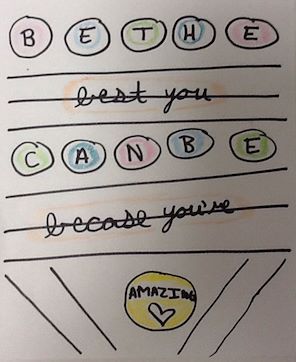 BE THE
best you
CAN BE
becase you're
AMAZING